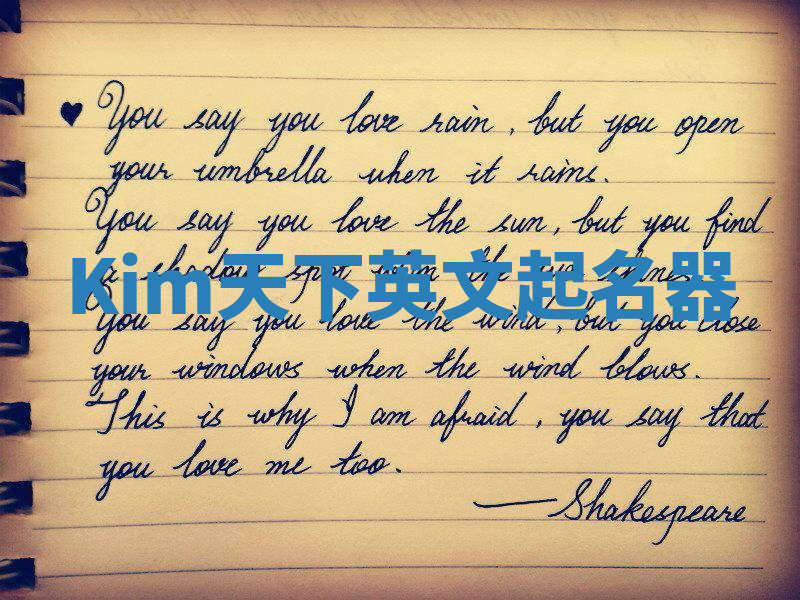 ♥ You say you love rain, but you open
your umbrella when it rains.
You say you love the sun, but you find
a shadow spot when the sun shines.
Kim天下英文起名器
You say you love the wind, but you close
your windows when the wind blows.
This is why I am afraid, you say that
you love me too.
—Shakespeare